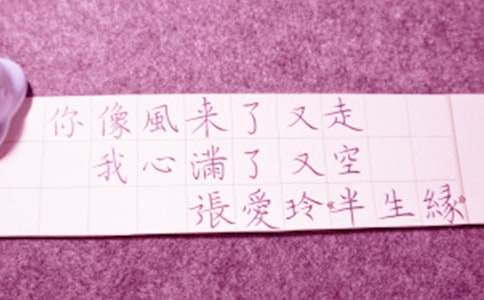 你像風来了又走
我心滿了又空
張愛玲·半生縁